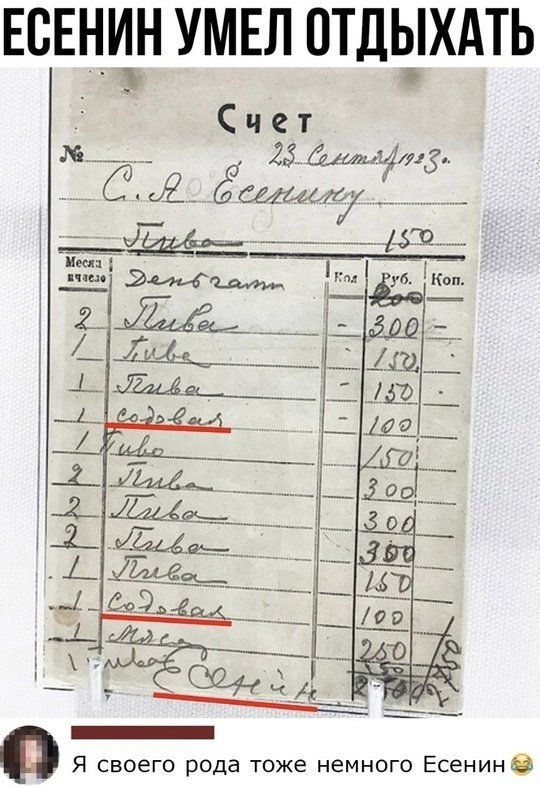 ЕСЕНИН УМЕЛ ОТДЫХАТЬ
Счет
№ 23 Сентяб 1923.
С. А Есенину
Пива 150
Месяц и число Деньгами Кол Руб. Коп.
200
2 Пива - 300 -
1 Пива 150
1 Пива - 150
1 содовая - 100
1 Пиво 150
2 Пива 300
2 Пива 300
2 Пива 300
1 Пива 150
1 Содовая 100
1 Мясо 250
1 пива 150
Есенин
Я своего рода тоже немного Есенин😂